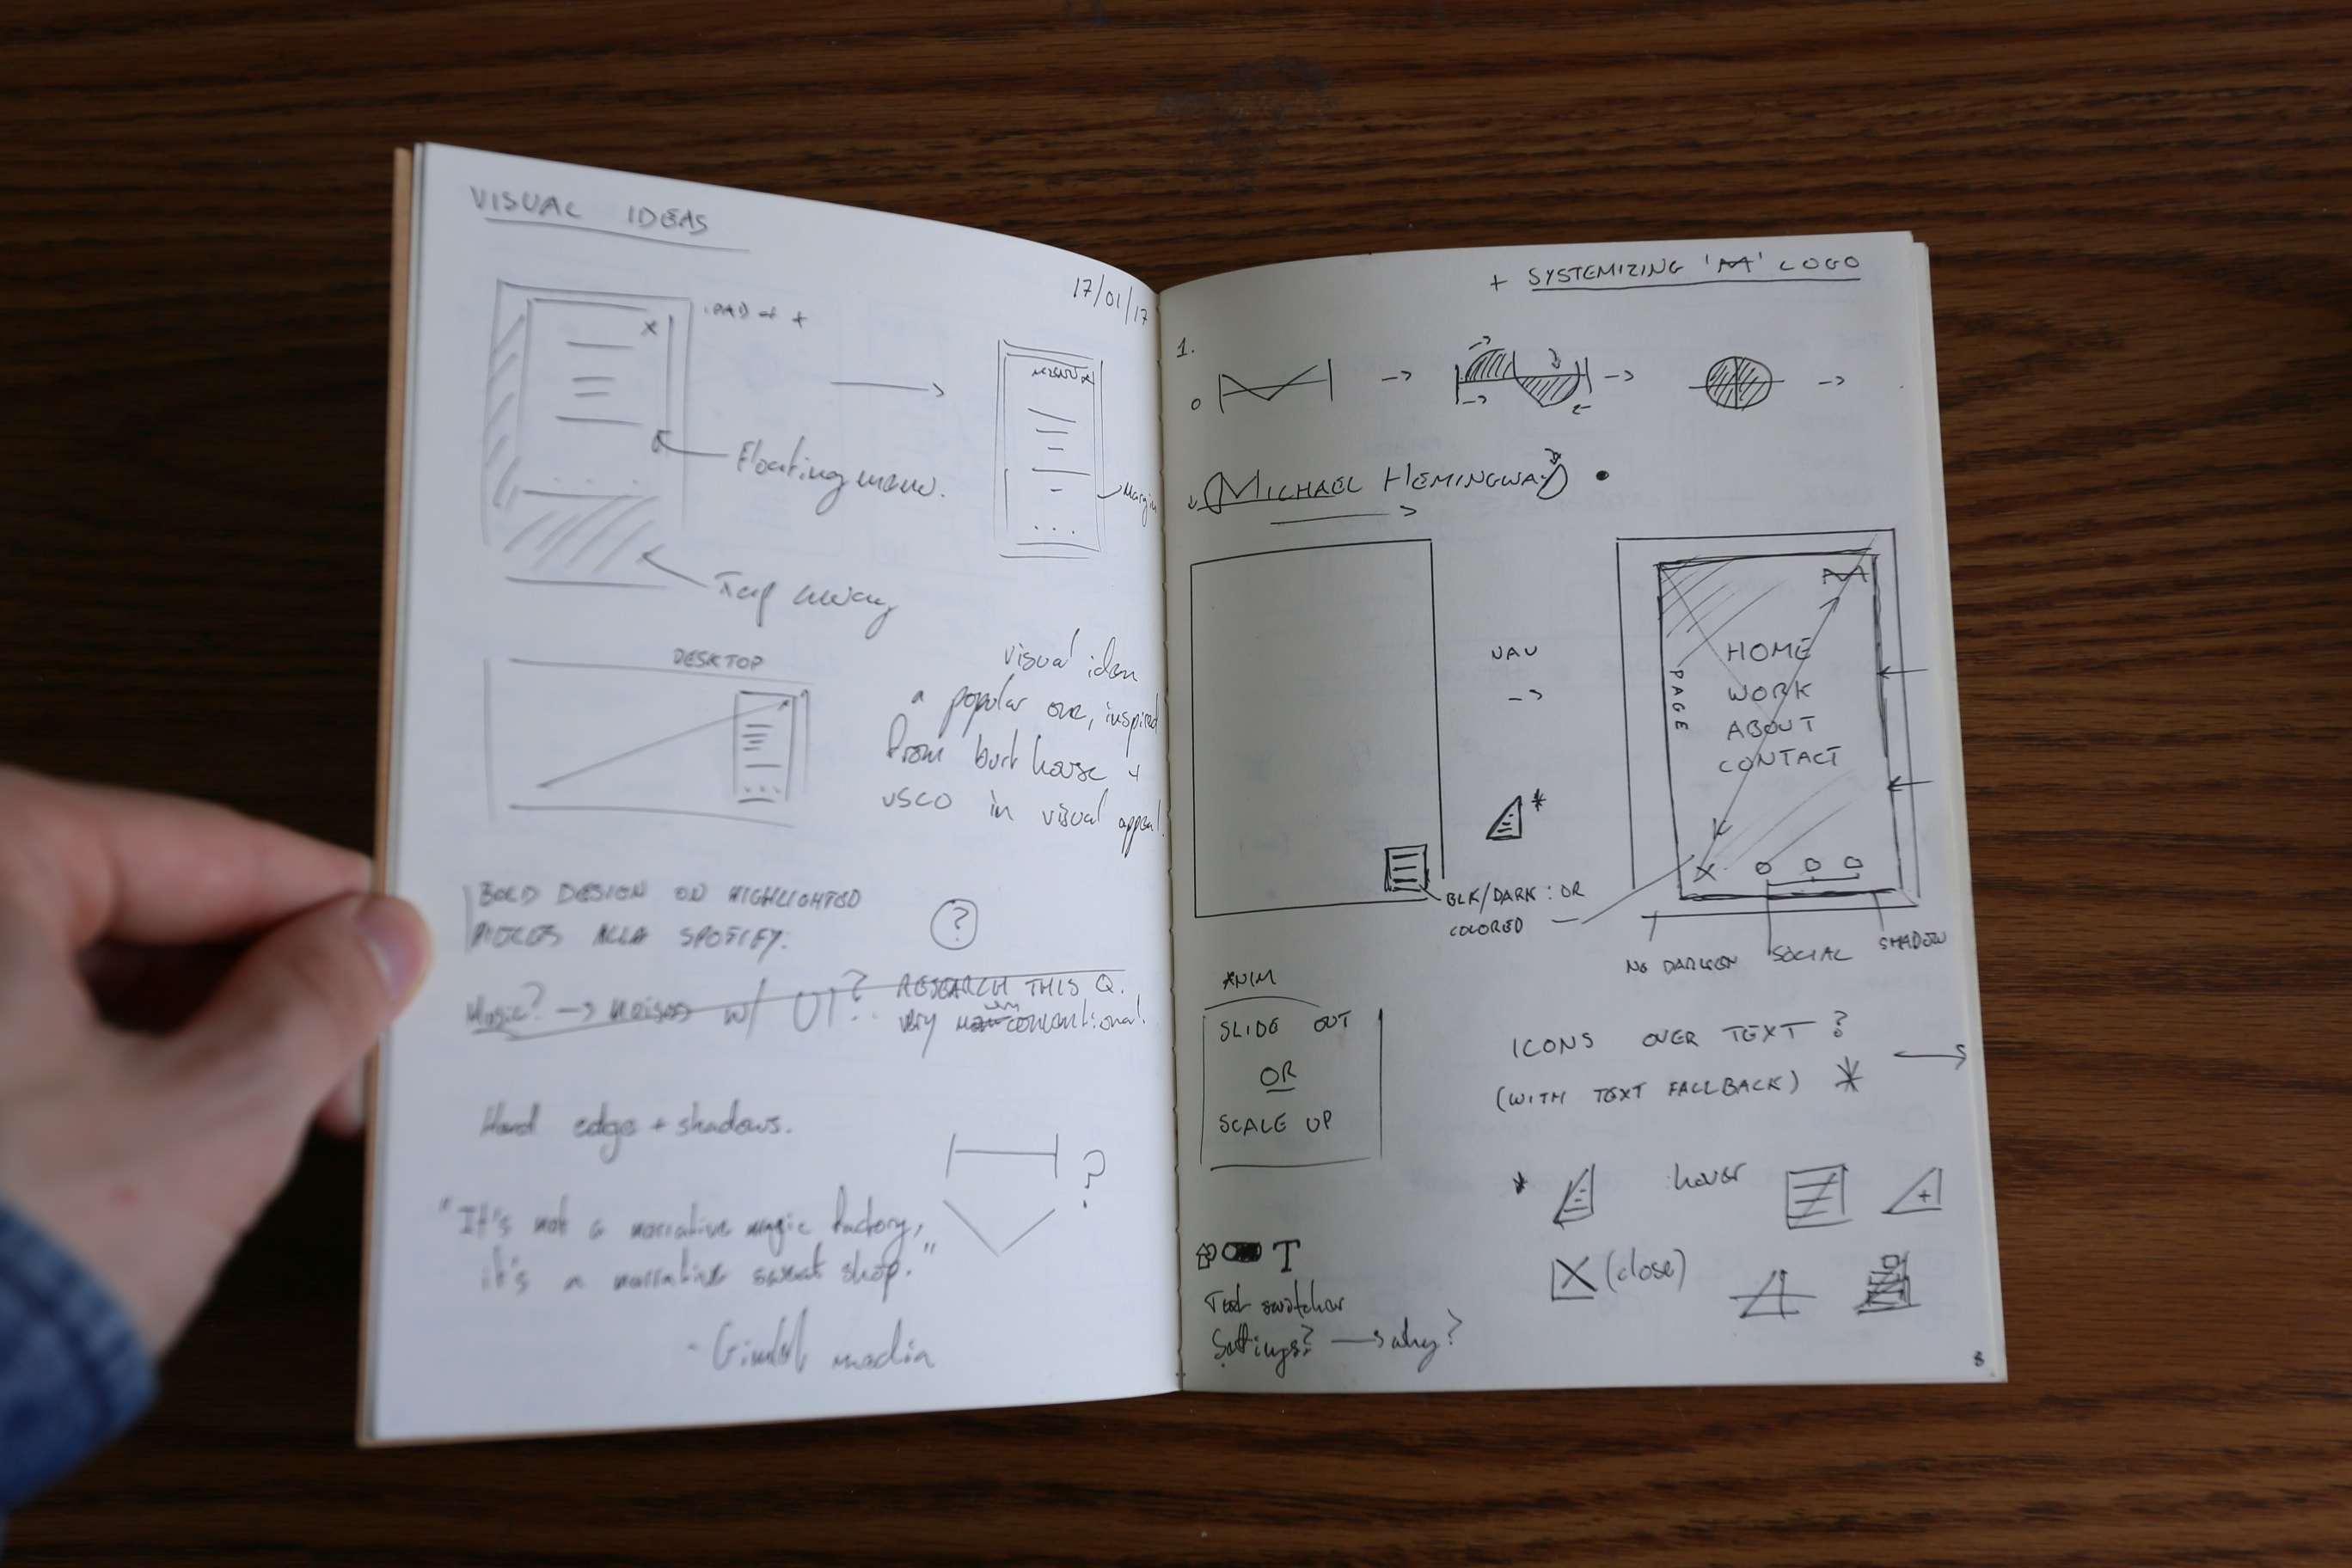 VISUAL IDEAS
17/01/17
IPAD → +
Floating menu.
Margin
Tap away
DESKTOP
visual idea
a popular one, inspired
from burt house +
VSCO in visual appeal.
BOLD DESIGN ON HIGHLIGHTED
PIECES ALLA SPOTIFY.
?
Music? → Noises w/ UI?
RESEARCH THIS Q.
very conventional!
Hard edge + shadows.
?
"It's not a narrative magic factory,
it's a narrative sweat shop."
- Gimlet media
+ SYSTEMIZING 'M' LOGO
1.
MICHAEL HEMINGWAY
NAV
PAGE
M
HOME
WORK
ABOUT
CONTACT
X
*
BLK/DARK : OR
COLORED
NO DARKEN
SOCIAL
SHADOW
ANIM
SLIDE OUT
OR
SCALE UP
ICONS OVER TEXT ?
(WITH TEXT FALLBACK) *
* hover
X (close)
T
Text switcher
Settings? → why?
8